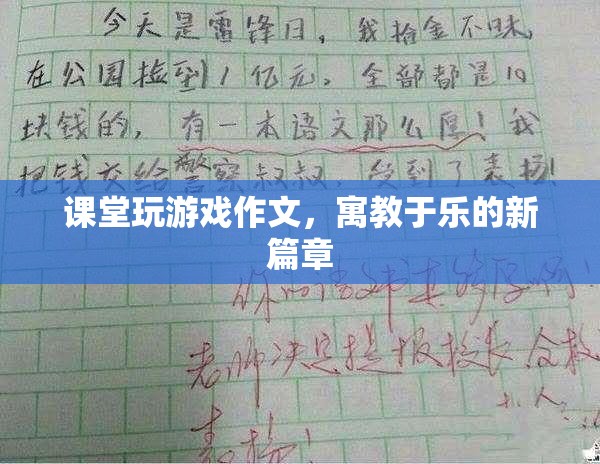 今天是雷锋日，我拾金不昧，
在公园捡到1亿元，全部都是10
块钱的，有一本语文那么厚！我
把钱交给警察叔叔，受到了表扬！
课堂玩游戏作文，寓教于乐的新
篇章
你的语文书真够厚啊！
老师决定提报校长全校
表扬！